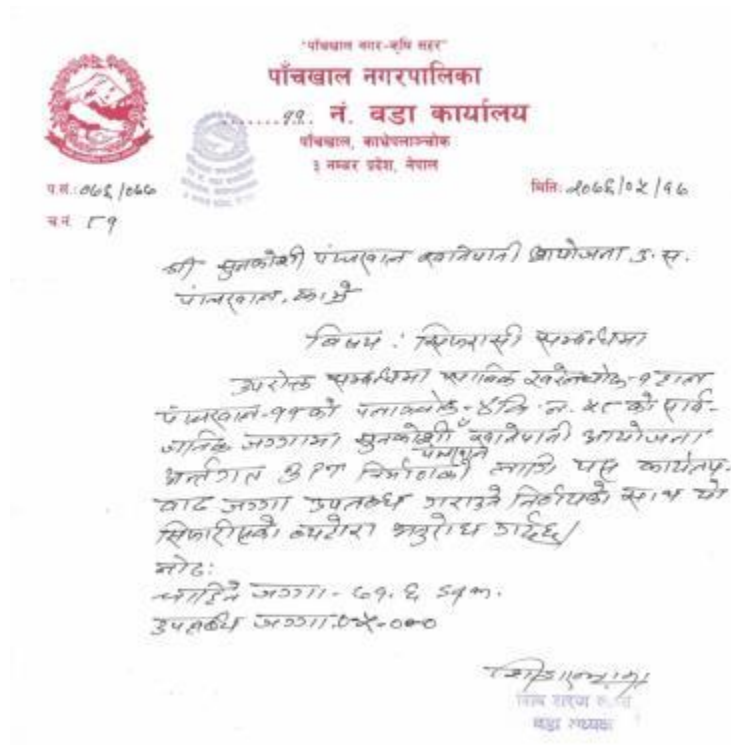 "पाँचखाल नगर-कृषि सहर"
पाँचखाल नगरपालिका
११ नं. वडा कार्यालय
पाँचखाल, काभ्रेपलाञ्चोक
३ नम्बर प्रदेश, नेपाल
प.सं.: ०७६/०७७
मिति: २०७६/०५/१७
च.नं. ८१
श्री सुनकोशी पांचखाल खानेपानी आयोजना उ.स.
पांचखाल, काभ्रे
विषय : सिफारसी सम्बन्धमा
उपरोक्त सम्बन्धमा साविक हाल
पांचखाल-११ को कि.न. ५८ को सार्व-
जनिक जग्गामा सुनकोशी खानेपानी आयोजना
पांचखाल
अर्न्तगत BPT निर्माणको लागि यस कार्यलय-
वाट जग्गा उपलब्ध गराउने निर्णयको साथ यो
सिफारीसको व्यहोरा अनुरोध गर्दछु।
नोट:
चाहिने जग्गा - ७१.६ sqm.
उपलब्ध जग्गा
वडा अध्यक्ष